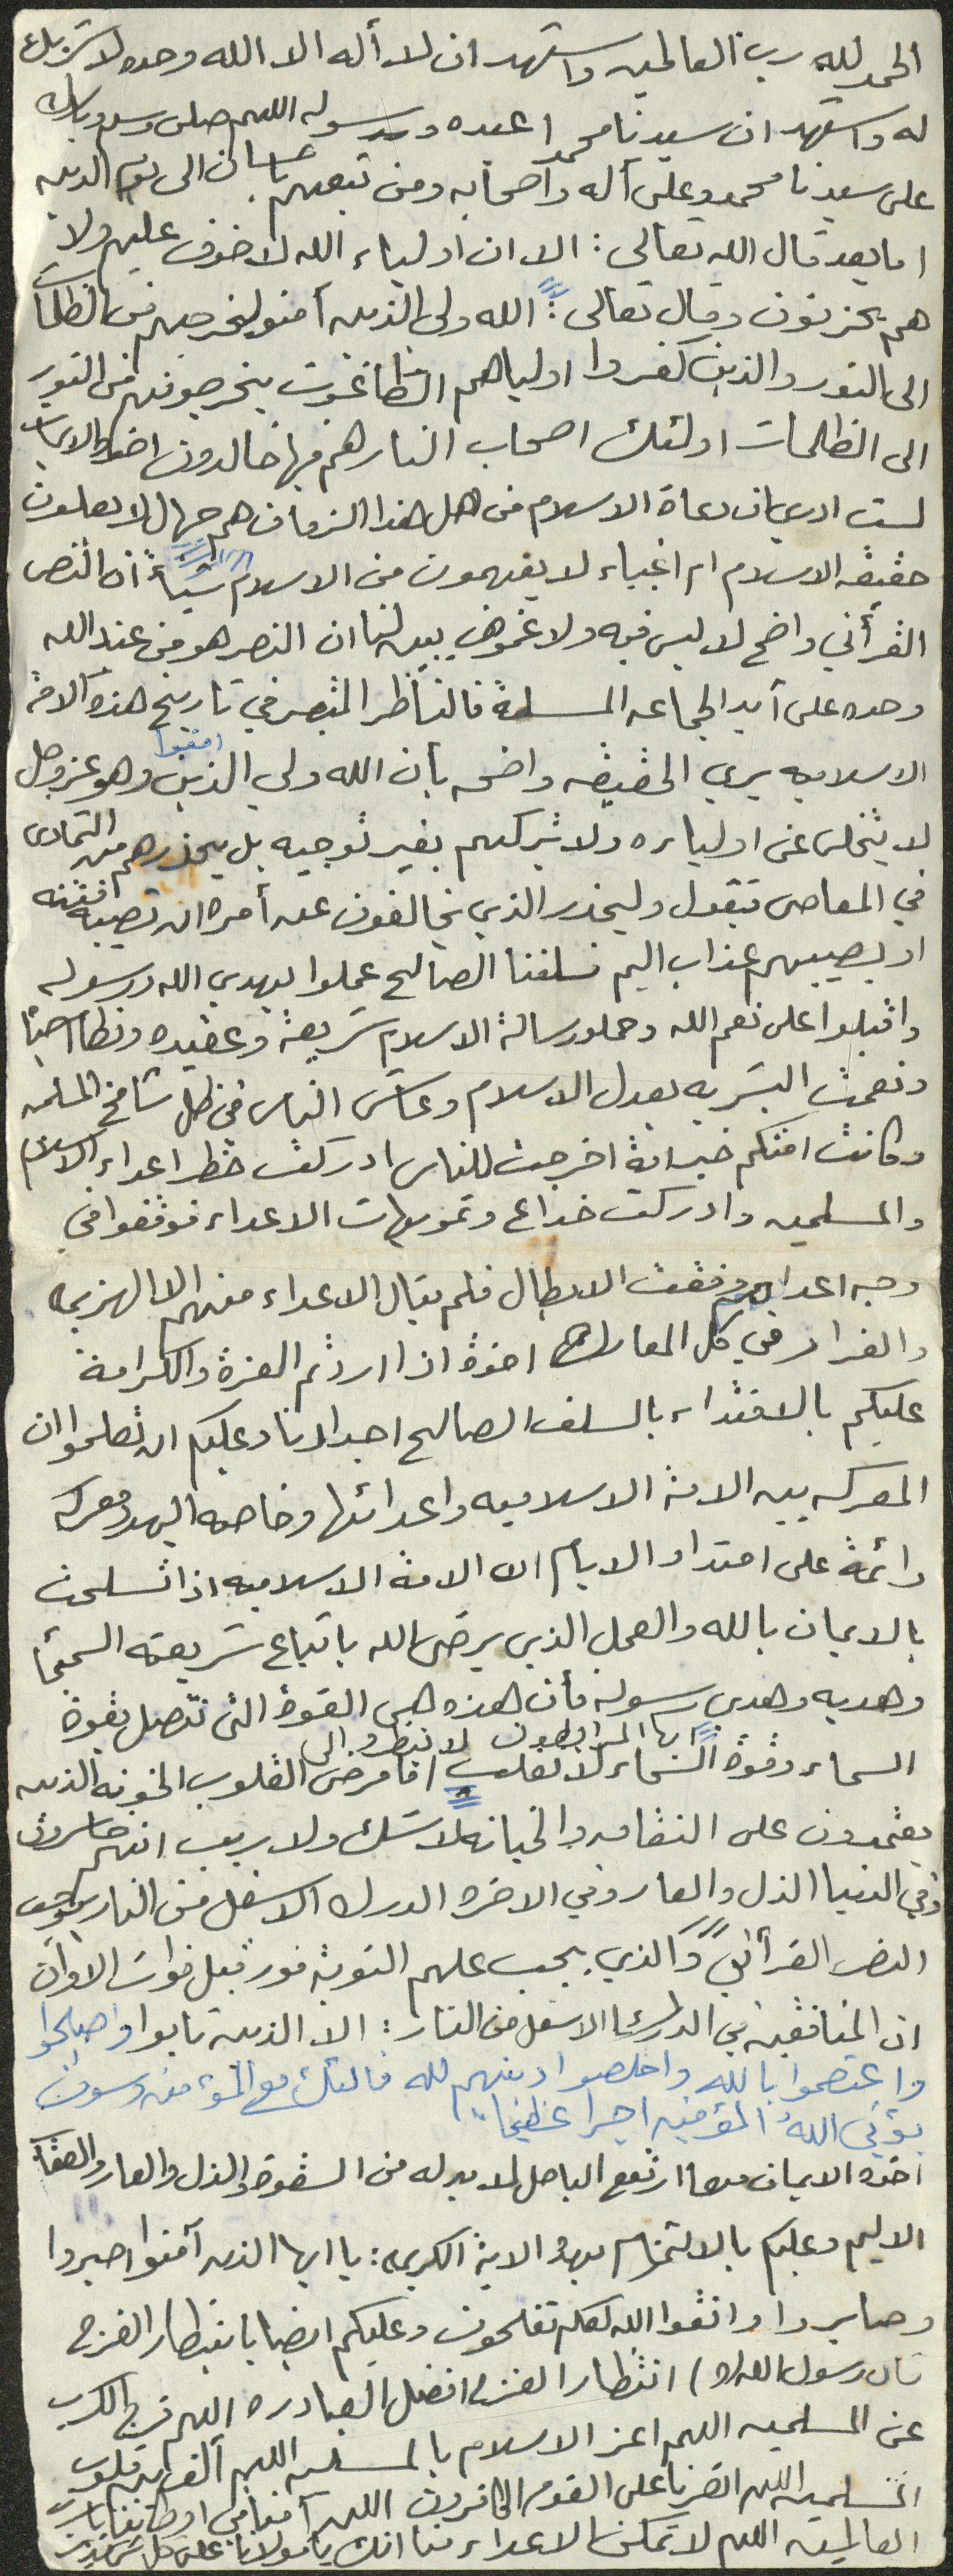 الحمد لله رب العالمين واشهد ان لا أله الا الله وحده لا شريك
له واشهد ان سيدنا محمدا عبده ورسوله اللهم صلى وسلم وبارك
على سيدنا محمد وعلى آله واصحابه ومن تبعهم باحسان الى يوم الدين
اما بعد قال الله تعالى : الا ان اولياء الله لا خوف عليهم ولا
هم يحزنون وقال تعالى : الله ولي الذين آمنو ليخرجهم من الظلمات
الى النور والذين كفروا اولياهم الطاغوت يخرجونهم من النور
الى الظلمات اولئك اصحاب النار هم فيها خالدون اخوة الايمان
لست ادري ان دعاة الاسلام من اهل هذا الزمان هم جهال لا يعلمون
حقيقه الاسلام ام اغبياء لا يفهمون من الاسلام شيأ ان النص
القرأني واضح لا لبس فيه ولا غموض يبين لنا ان النصر هو من عند الله
وحده على أيد الجماعه المسلمة فالناظر المتبصر في تاريخ هذه الامة
الاسلاميه يري الحقيقه واضحه بأن الله ولي الذين امنوا وهو عز وجل
لا يتخلى عن اولياءه ولا يتركهم بغير توجيه بل يحذرهم من التمادى
في المعاصى فيقول وليحذر الذي يخالفون عن أمره ان تصيبهم فتنه
او يصيبهم عذاب اليم فسلفنا الصالح عملوا بهدي الله ورسوله
واقبلوا على نعم الله وحملو رسالة الاسلام شريعة وعقيده ونظام حياة
ونعمت البشريه بعدل الاسلام وعاش الناس في ظل تسامح المسلمين
وكانت امتكم خير امة اخرجت للناس ادركت خطر اعداء الاسلام
والمسلمين وادركت خداع وتمويهات الاعداء فوقفوا في
وجه اعداءهم وقفت الابطال فلم ينال الاعداء منهم الا الهزيمه
والفرار في كل المعارك اخوة اذا اردتم العزة والكرامة
عليكم بالاقتداء بالسلف الصالح اجدادنا وعليكم ان تعلموا ان
المعركه بين الامة الاسلاميه واعدائها وخاصه اليهود معركه
دائمة على امتداد الايام ان الامة الاسلاميه اذا تسلحت
بالايمان بالله والعمل الذي يرضى الله باتباع شريعته السمحأ
وهديه وهدى رسوله فأن هذه هي القوة التى تتصل بقوة
ايها المرابطون لا تنظرو الى
السماء وقوة السماء لا تغلب اما مرضى القلوب الخونه الذين
يعتمدون على النفاق والخيانه لا شك ولا ريب انهم خاسرون
وفي الدنيا الذل والعار وفي الاخره الدرك الاسفل من النار بموجب
النص القرأني والذي يجب عليهم التوبة فور قبل فوات الاوان
ان المنافقين في الدرك الاسفل من النار : الا الذين تابوا واصلحوا
واعتصموا بالله واخلصوا دينهم لله فالئك مع المؤمنين وسوف
يؤتي الله المؤمنين اجرا عظيما
اخوة الايمان مهما ارتفع الباطل لا بد له من السقوط والذل والعار والعقاب
الاليم وعليكم بالالتزام بهذه الاية الكريمه : يا ايها الذين آمنوا اصبروا
وصابروا واتقوا الله لعلكم تفلحون وعليكم ايضا بانتظار الفرج
قال رسول الله (ص) انتظار الفرج افضل العباده اللهم فرج الكرب
عن المسلمين اللهم اعز الاسلام بالمسلمين اللهم ألف بين قلوب
المسلمين اللهم انصرنا على القوم الكافرين اللهم آمنا في اوطاننا يارب
العالمين اللهم لا تمكن الاعداء منا انك يا مولانا على كل شئ قدير